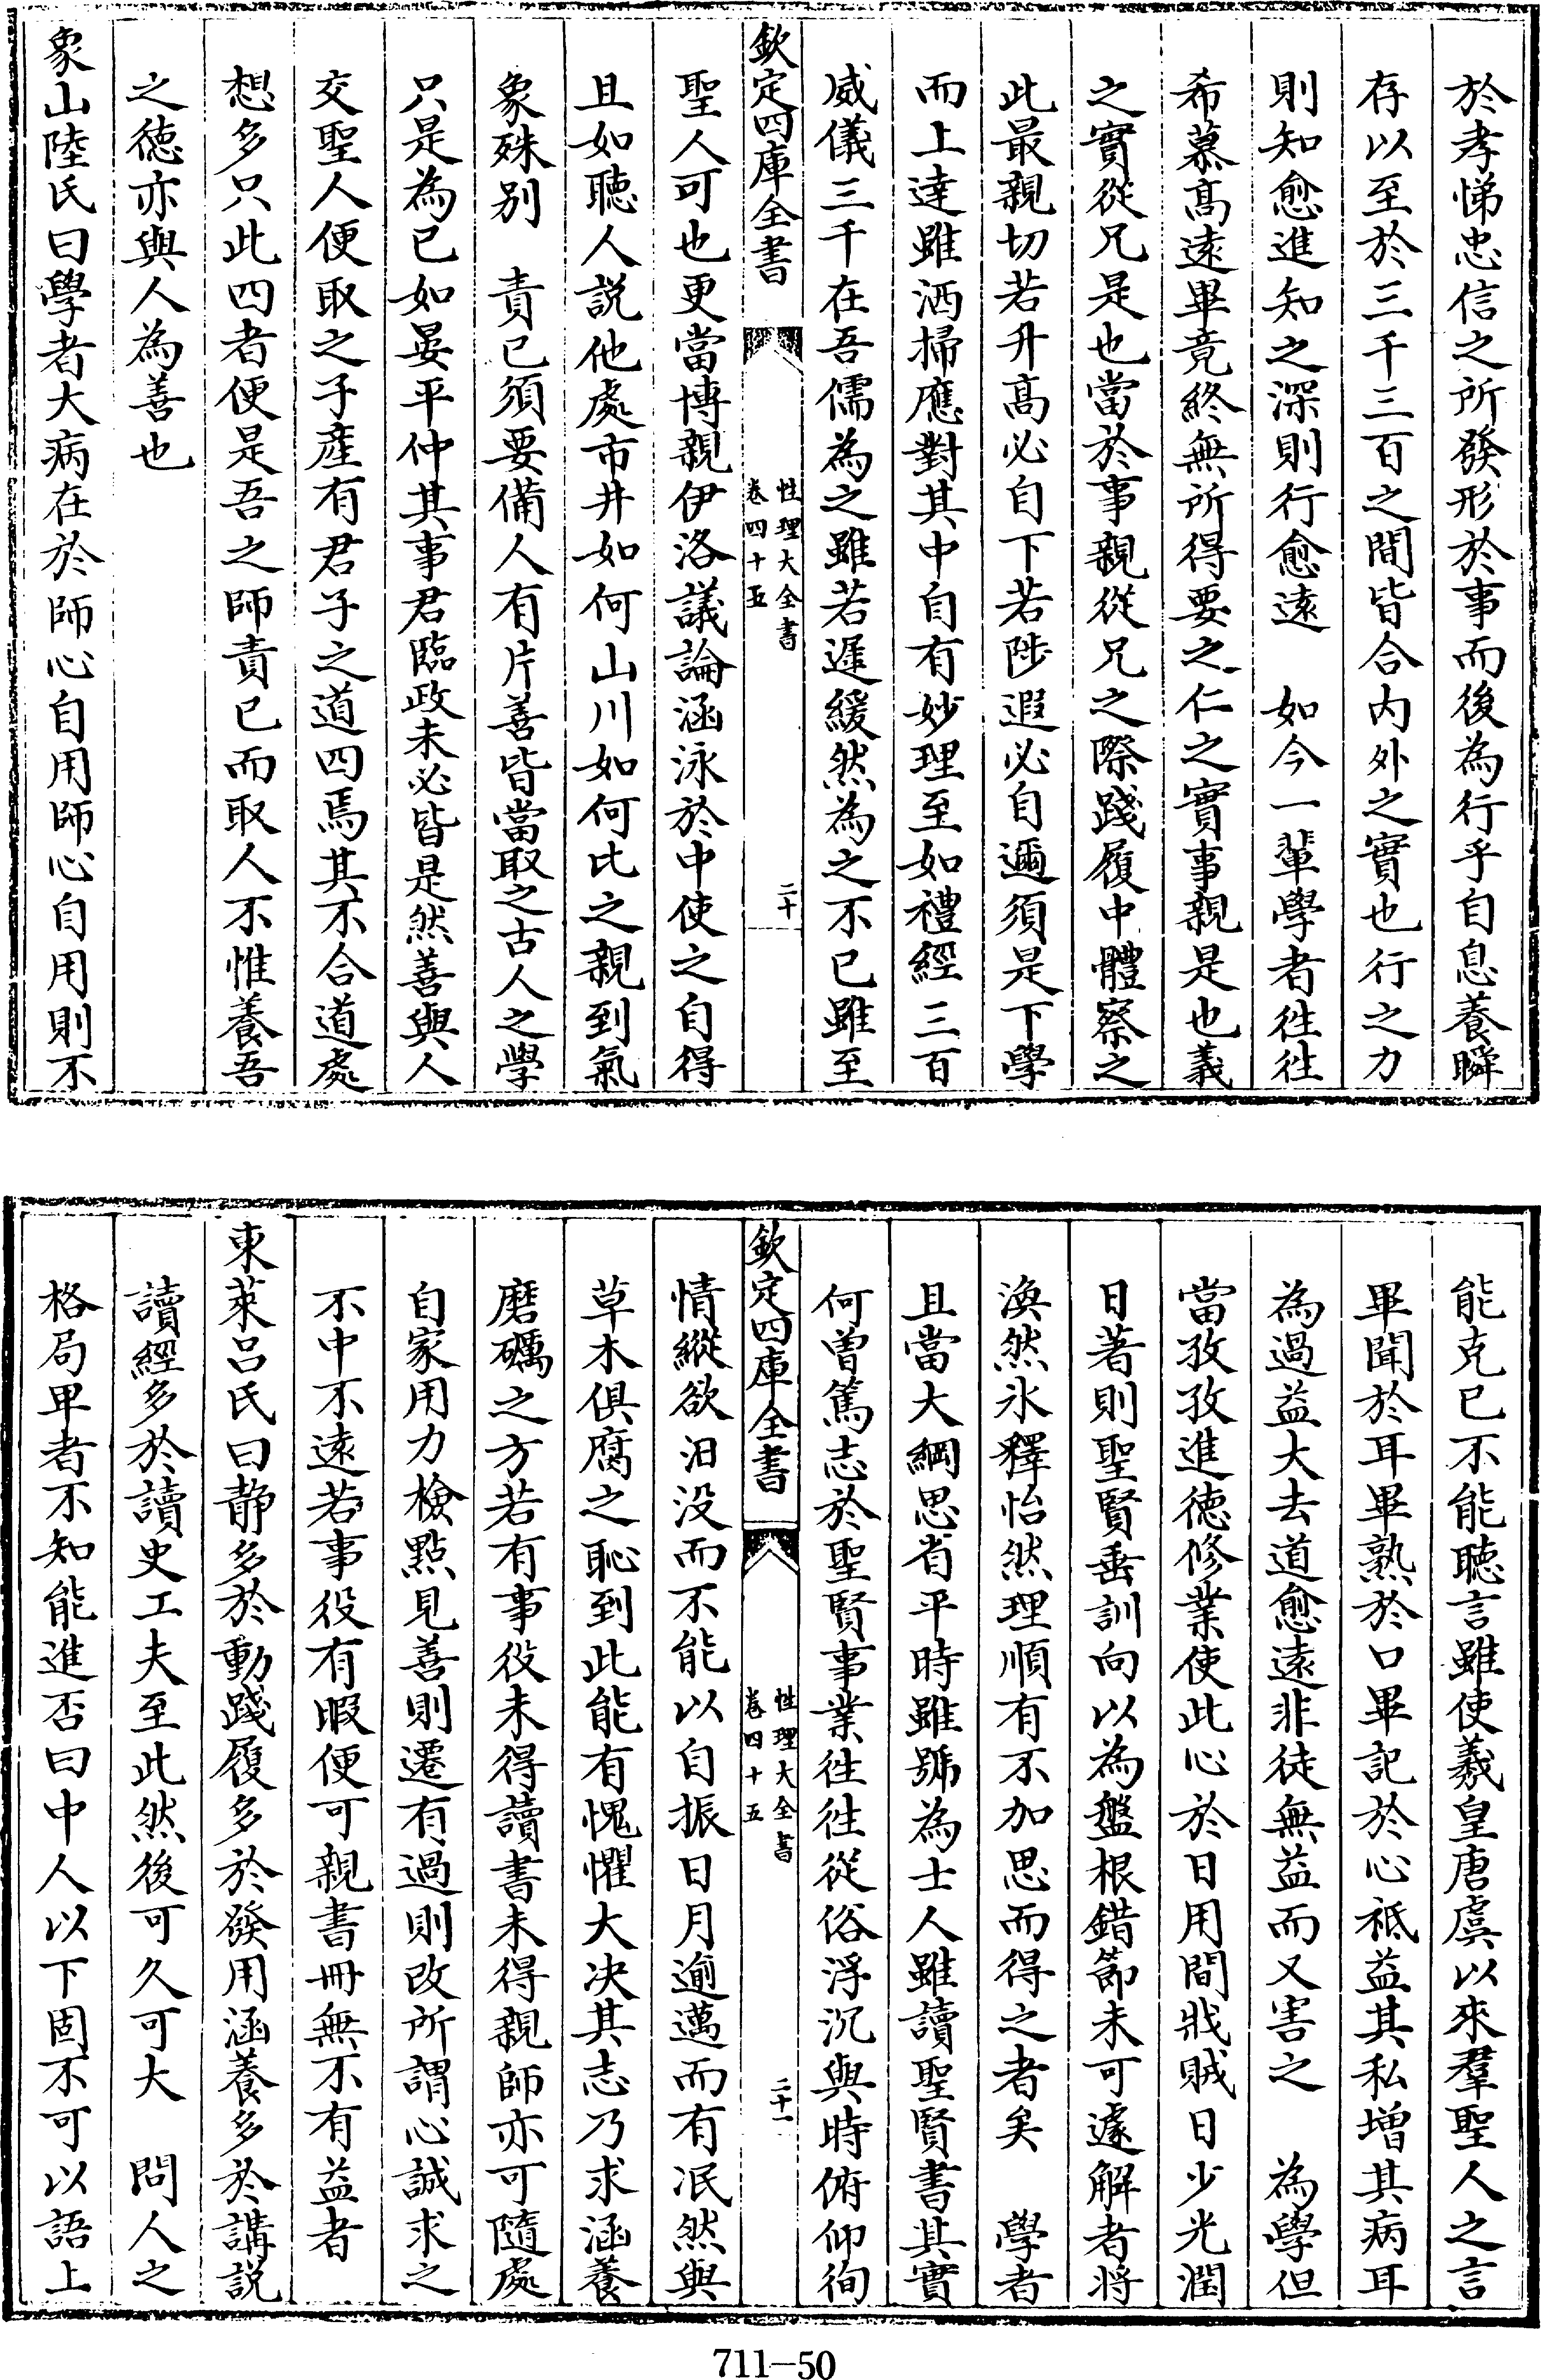 於孝悌忠信之所發形於事而後為行乎自息養瞬
存以至於三千三百之間皆合内外之實也行之力
則知愈進知之深則行愈逺　如今一輩學者徃徃
希慕髙逺畢竟終無所得要之仁之實事親是也義
之實從兄是也當於事親從兄之際踐履中體察之
此最親切若升髙必自下若陟遐必自邇須是下學
而上達雖洒掃應對其中自有妙理至如禮經三百
威儀三千在吾儒為之雖若遲緩然為之不已雖至
欽定四庫全書
性理大全書
卷四十五
二十
聖人可也更當博親伊洛議論涵泳於中使之自得
且如聽人説他處市井如何山川如何比之親到氣
象殊别　責已須要備人有片善皆當取之古人之學
只是為已如晏平仲其事君臨政未必皆是然善與人
交聖人便取之子產有君子之道四焉其不合道處
想多只此四者便是吾之師責已而取人不惟養吾
之徳亦與人為善也
象山陸氏曰學者大病在於師心自用師心自用則不
能克已不能聽言雖使羲皇唐虞以來羣聖人之言
畢聞於耳畢熟於口畢記於心祗益其私增其病耳
為過益大去道愈逺非徒無益而又害之　為學但
當孜孜進徳修業使此心於日用間戕賊日少光潤
日著則聖賢垂訓向以為盤根錯節未可遽解者將
渙然氷釋怡然理順有不加思而得之者矣　學者
且當大綱思省平時雖號為士人雖讀聖賢書其實
何曽篤志於聖賢事業徃徃從俗浮沉與時俯仰徇
欽定四庫全書
性理大全書
卷四十五
二十一
情縱欲汨没而不能以自振日月逾邁而有泯然與
草木俱腐之恥到此能有愧懼大决其志乃求涵養
磨礪之方若有事役未得讀書未得親師亦可隨處
自家用力檢點見善則遷有過則改所謂心誠求之
不中不逺若事役有暇便可親書冊無不有益者
東萊吕氏曰静多於動踐履多於發用涵養多於講説
讀經多於讀史工夫至此然後可久可大　問人之
格局卑者不知能進否曰中人以下固不可以語上
711—50